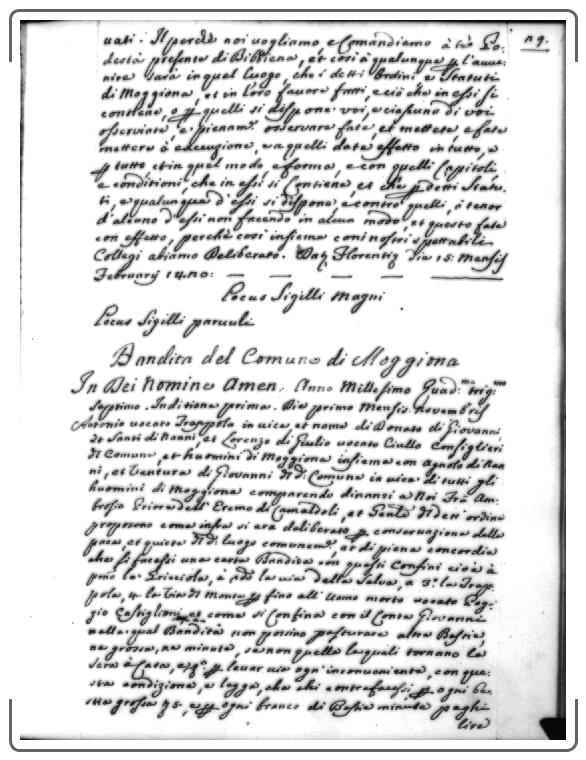 n 9.
vati. Il perchè noi vogliamo e Comandiamo à te Po-
destà presente di Bibbiena, et così à qualunque p l'avve-
nire sarà in quel luogo, che i detti Ordini e Statuti
di Moggiona, et in loro favore fatti, e ciò che in essi si
contiene, o p quelli si dispone voi, e ciascuno di voi
osserviate, e pienam.e osservare fate, et mettete, e fate
mettere à essecuzione, e a quelli date effetto in tutto, e
p tutto et in quel modo e forma, e con quelli Capitoli,
e conditioni, che in essi si Contiene, et che p detti Statu-
ti, e qualunque d'essi si dispone, e contro quelli, à tenor
d'alcuno d'essi non facendo in alcun modo, et questo fate
con effetto, perchè così insieme coni nostri spettabili
Collegi abiamo Deliberato. Dat. Florentiæ Die 15: Mensis
Februarij
Locus Sigilli Magni
Locus Sigilli parvuli
Bandita del Comune di Moggiona
In Dei Nomine Amen. Anno Millesimo Quad.mo trig.mo
Septimo. Inditione prima. Die primo Mensis Novembris
Antonio vocato Trappola in vice et nome di Donato di Giovanni
di Santi di Nanni, et Lorenzo di Giulio vocato Ciullo Consiglieri
di Comune, et huomini di Moggiona insieme con Agnolo di Nan
ni, et Ventura di Giovanni di d: Comune in vice di tutti gli
huomini di Moggiona comparendo dinanzi a Noi Frà Am-
brosio Priore dell'Eremo di Camaldoli, et Gen.le di det.o ordine
proposono come infra si era deliberato p conservazione della
pace, et quiete di d: luogo comunem.e, et di piena concordia
che si facessi una certa Bandita con questi Confini cioè à
p.mo la Pricciola, à 2.do la via della Selva, a 3.o la Trap-
pola, 4. la Via di Monte p fino all'Uomo morto vocato Pog-
gio Castiglioni, et come si Confina con il Conte Giovanni
nella qual Bandita non possino pasturare altre Bestie,
ne grosse, ne minute, se non quelle le quali tornano la
sera à Casa, e p levar via ogn'inconveniente, con que-
sta condizione, e legge, che chi contrafacessi p ogni be-
stia grossa, e p ogni branco di Bestie minute paghi
lire